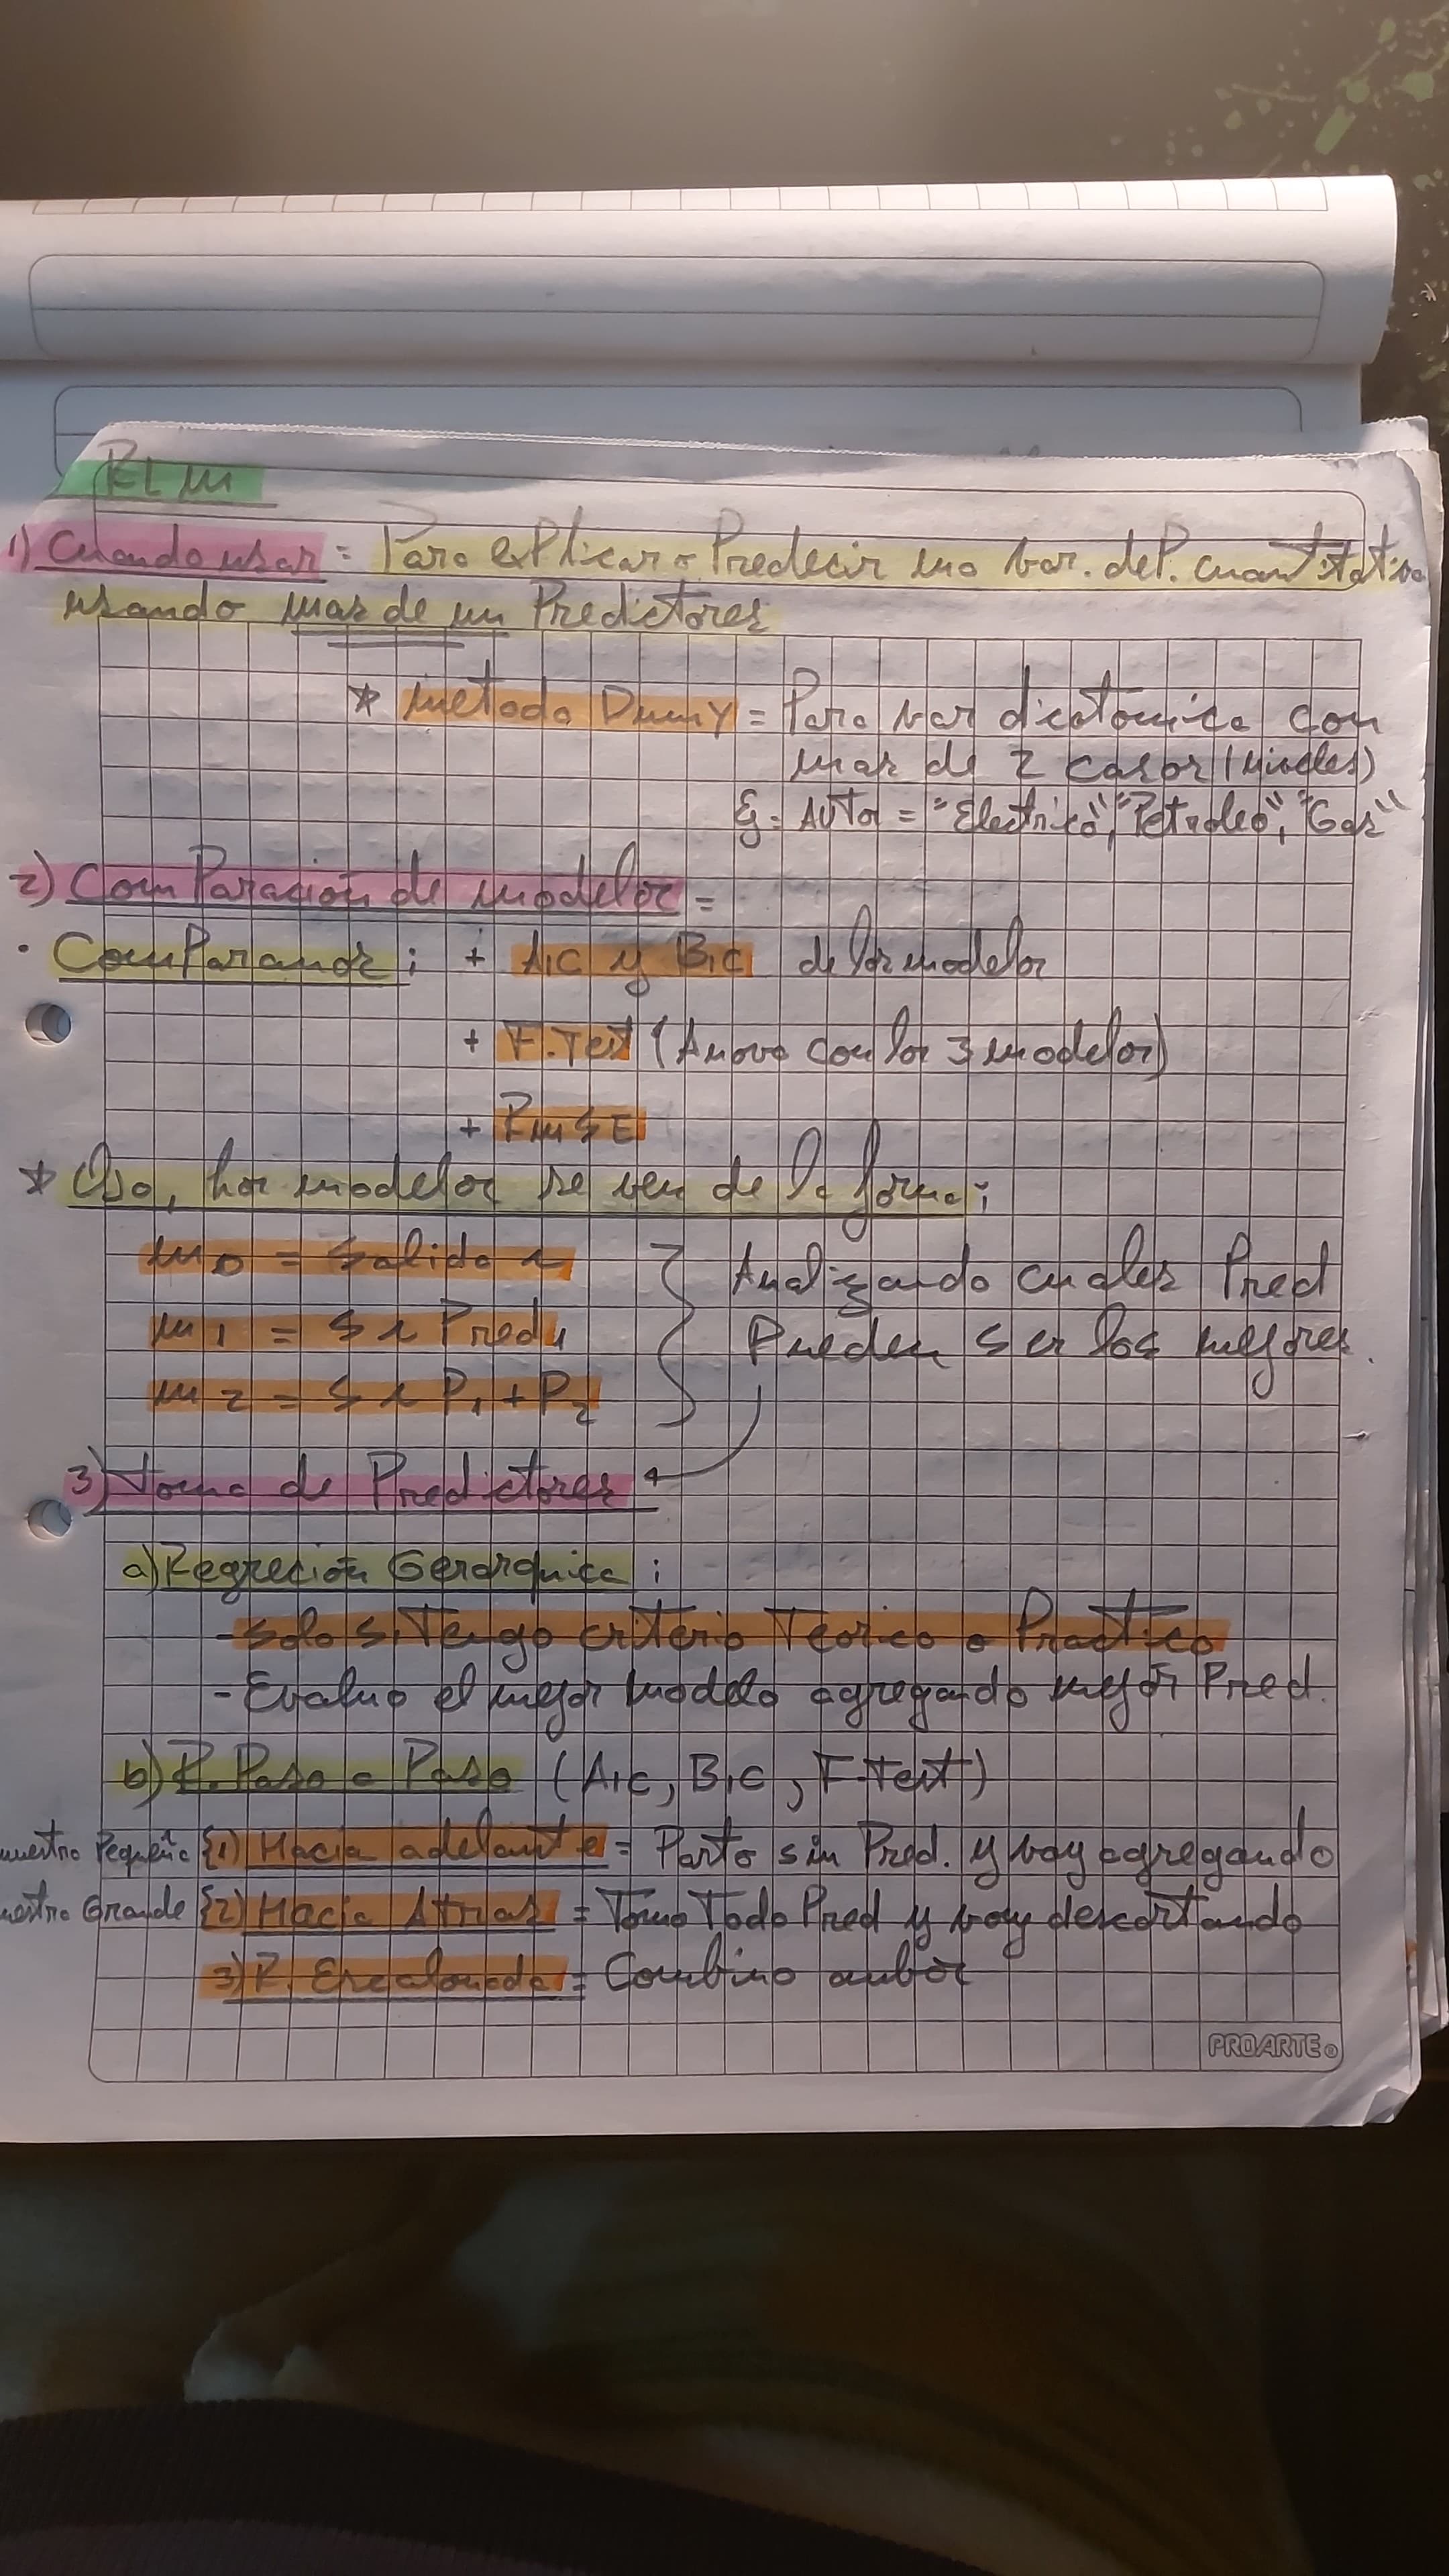 RLM
1) Cuando usar = Para explicar o Predecir una var. deP. cuantitativa
usando mas de un Predictores
* metodo Dumy = Para var dicotomica con
mas de 2 casos (Niveles)
Ej = Auto = "Electrico", "Petroleo", "Gas"
2) ComParación de modelos =
· ComParamos ; + AIC y BIC de los modelos
+ F.Test (Anova con los 3 modelos)
+ RMSE
* Ojo, los modelos se ven de la forma ;
m0 = Salida ~
m1 = S ~ Pred1
m2 = S ~ P1 + P2
Analizando cuales Pred
Pueden ser los mejores.
3) Toma de Predictores
a) Regreción Gerarquica ;
- solo si Tengo criterio Teorico o Practico
- Evaluo el mejor modelo agregando mejor Pred.
b) R. Paso a Paso (AIC, BIC, F-Test)
muestra Pequeña { 1) Hacia adelante = Parto sin Pred. y voy agregando
muestra Grande { 2) Hacia Atrias = Tomo Todo Pred y voy descartando
3) R. Escalonada = Combino ambos
PROARTE®